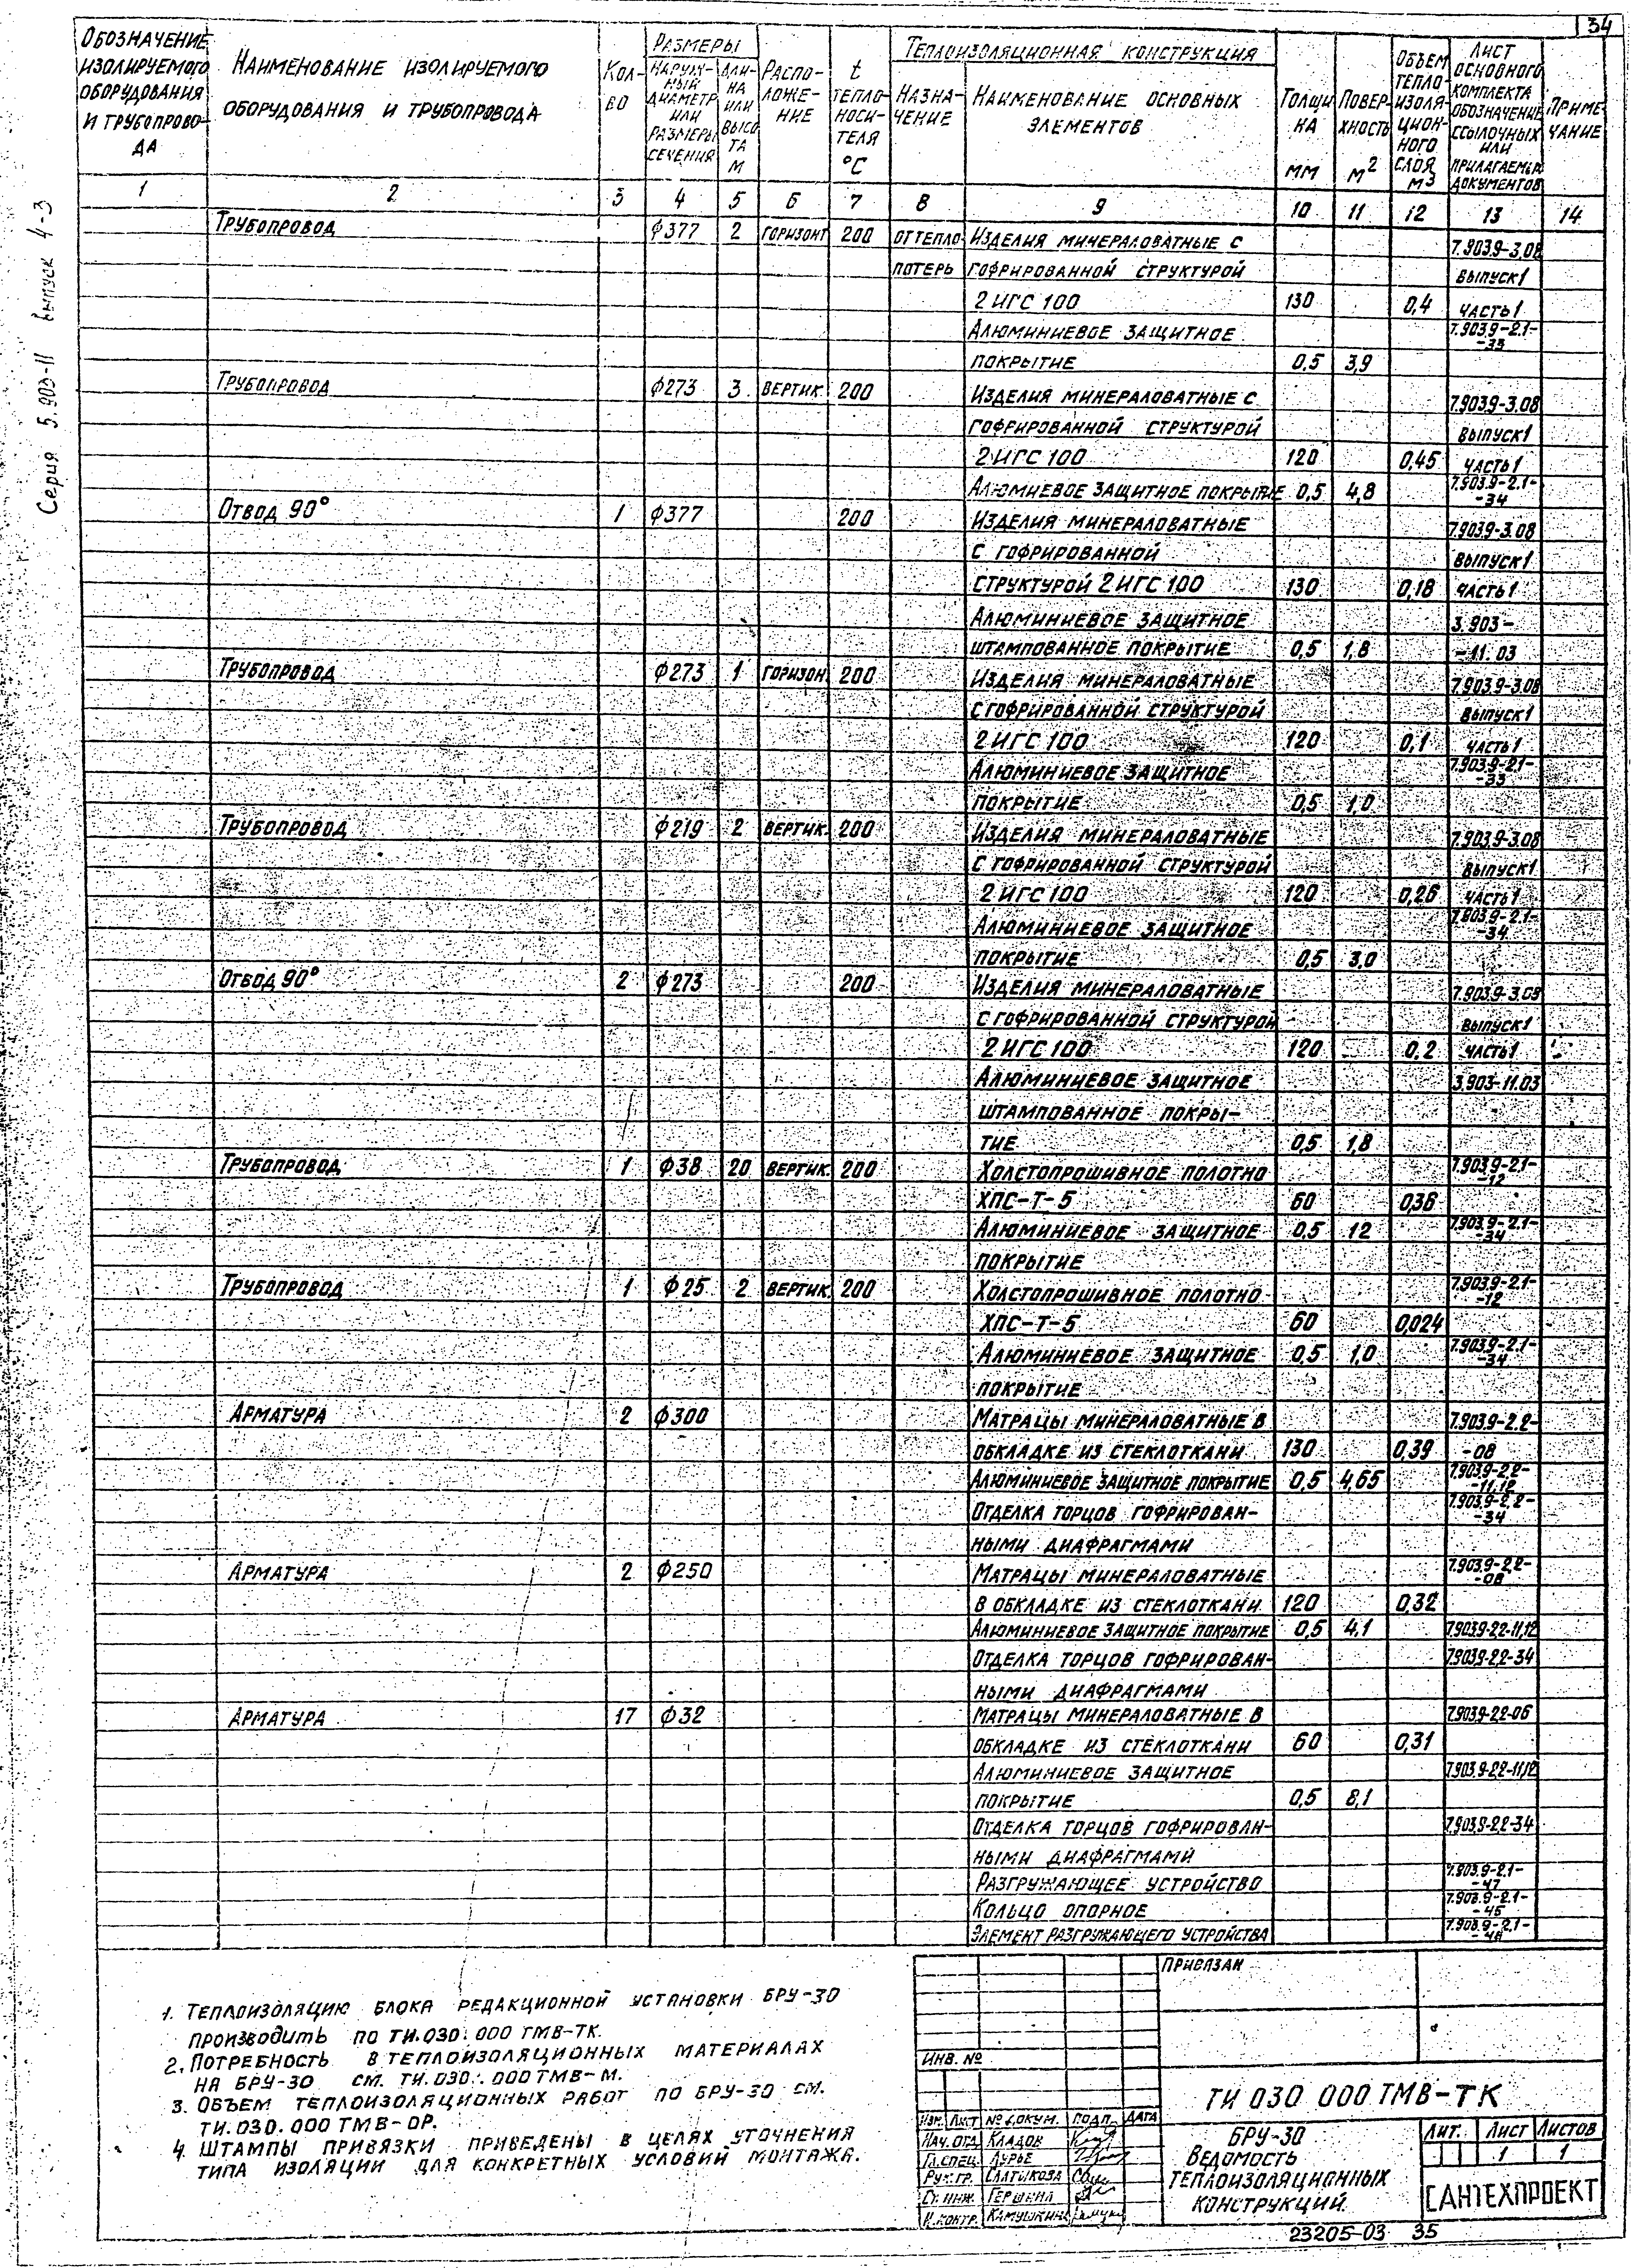 34
Серия 5.903-11 выпуск 4-3
Обозначение изолируемого оборудования и трубопрово- да
Наименование изолируемого оборудования и трубопровода
Кол- во
Размеры
Наруж- ный диаметр или размеры сечения
Дли- на или высо та м
Распо- ложе- ние
t тепло- носи- теля °С
Теплоизоляционная конструкция
Назна- чение
Наименование основных элементов
Толщи на мм
Повер- хность м2
Объем тепло изоля- цион- ного слоя м3
Лист основного комплекта обозначение ссылочных или прилагаемых документов
Приме чание
1 2 3 4 5 6 7 8 9 10 11 12 13 14
Трубопровод ф377 2 горизонт 200 от тепло- Изделия минераловатные с 7.903.9-3.08
потерь гофрированной структурой выпуск1
2 ИГС 100 130 0,4 часть1
Алюминиевое защитное 7.903.9-2.1- -33
покрытие 0,5 3,9
Трубопровод ф273 3 вертик. 200 Изделия минераловатные с 7.903.9-3.08
гофрированной структурой выпуск1
2 ИГС 100 120 0,45 часть1
Алюмиевое защитное покрытие 0,5 4,8 7.903.9-2.1- -34
Отвод 90° 1 ф377 200 Изделия минераловатные 7.903.9-3.08
с гофрированной выпуск1
структурой 2 ИГС 100 130 0,18 часть1
Алюминиевое защитное 3.903-
штампованное покрытие 0,5 1,8 -11.03
Трубопровод ф273 1 горизон. 200 Изделия минераловатные 7.903.9-3.08
с гофрированной структурой выпуск1
2 ИГС 100 120 0,1 часть1
Алюминиевое защитное 7.903.9-2.1- -33
покрытие 0,5 1,0
Трубопровод ф219 2 вертик. 200 Изделия минераловатные 7.903.9-3.08
с гофрированной структурой выпуск1
2 ИГС 100 120 0,26 часть1
Алюминиевое защитное 7.903.9-2.1- -34
покрытие 0,5 3,0
Отвод 90° 2 ф273 200 Изделия минераловатные 7.903.9-3.08
с гофрированной структурой выпуск1
2 ИГС 100 120 0,2 часть1
Алюминиевое защитное 3.903-11.03
штампованное покры-
тие 0,5 1,8
Трубопровод 1 ф38 20 вертик. 200 Холстопрошивное полотно 7.903.9-2.1- -12
ХПС-Т-5 60 0,36
Алюминиевое защитное 0,5 12 7.903.9-2.1- -34
покрытие
Трубопровод 1 ф25 2 вертик. 200 Холстопрошивное полотно 7.903.9-2.1- -12
ХПС-Т-5 60 0,024
Алюминиевое защитное 0,5 1,0 7.903.9-2.1- -34
покрытие
Арматура 2 ф300 Матрацы минераловатные в 7.903.9-2.2-
обкладке из стеклоткани 130 0,39 -08
Алюминиевое защитное покрытие 0,5 4,65 7.903.9-2.2- -11,12
Отделка торцов гофрирован- 7.903.9-2.2- -34
ными диафрагмами
Арматура 2 ф250 Матрацы минераловатные 7.903.9-2.2- -08
в обкладке из стеклоткани 120 0,32
Алюминиевое защитное покрытие 0,5 4,1 7.903.9-2.2-11,12
Отделка торцов гофрирован- 7.903.9-2.2-34
ными диафрагмами
Арматура 17 ф32 Матрацы минераловатные в 7.903.9-2.2-06
обкладке из стеклоткани 60 0,31
Алюминиевое защитное 7.903.9-2.2-11,12
покрытие 0,5 8,1
Отделка торцов гофрирован- 7.903.9-2.2-34
ными диафрагмами
Разгружающее устройство 7.903.9-2.1- -47
Кольцо опорное 7.903.9-2.1- -45
Элемент разгружающего устройства 7.903.9-2.1-
1. Теплоизоляцию блока редакционной установки БРУ-30
производить по ТИ.030.000 ТМВ-ТК.
2. Потребность в теплоизоляционных материалах
на БРУ-30 см. ТИ.030.000 ТМВ-М.
3. Объем теплоизоляционных работ по БРУ-30 см.
ТИ.030.000 ТМВ-ОР.
4. Штампы привязки приведены в целях уточнения
типа изоляции для конкретных условий монтажа.
Привязан
Инв. №
ТИ 030 000 ТМВ-ТК
Изм. Лист № докум. Подп. Дата
Нач. отд. Кладов
Гл. спец. Гурье
Рук. гр.
Ст. инж.
Н. контр.
БРУ-30
Ведомость
теплоизоляционных
конструкций
Лит. Лист Листов
1 1
САНТЕХПРОЕКТ
23205-03 35